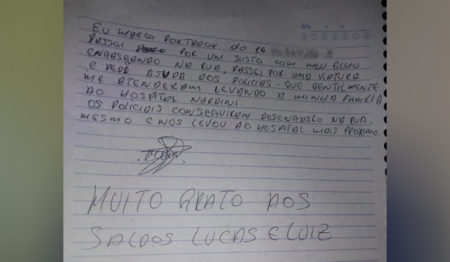 EU MARCO PORTADOR DO RG
PASSEI POR UM SUSTO COM MEU FILHO
ENGASGANDO NA RUA, PASSEI POR UMA VIATURA
E PEDI AJUDA DOS POLICIAS QUE GENTILMENTE
ME ATENDERAM LEVANDO A MINHA FAMILIA
AO HOSPITAL NARDINI.
OS POLICIAIS CONSEGUIRAM DESENGASGALO NA RUA
MESMO E NOS LEVOU AO HOSPITAL MAIS PROXIMO
MUITO GRATO AOS
SALDOS LUCAS E LUIZ